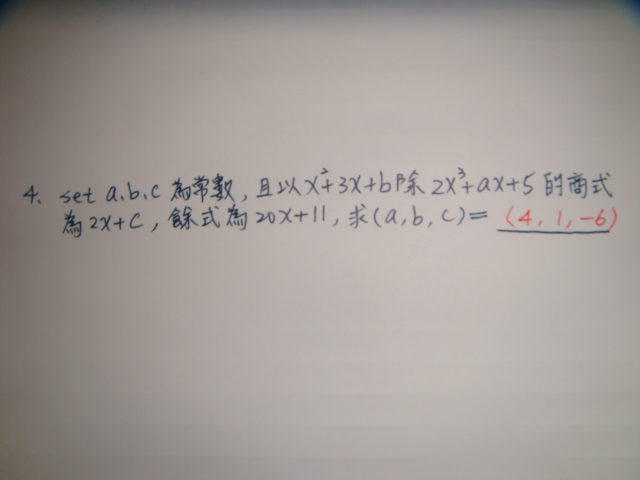 4. set a.b.c 為常數,且以x²+3x+b除 2x³+ax+5 的商式
為2x+c,餘式為20x+11,求(a,b,c)= (4,1,-6)